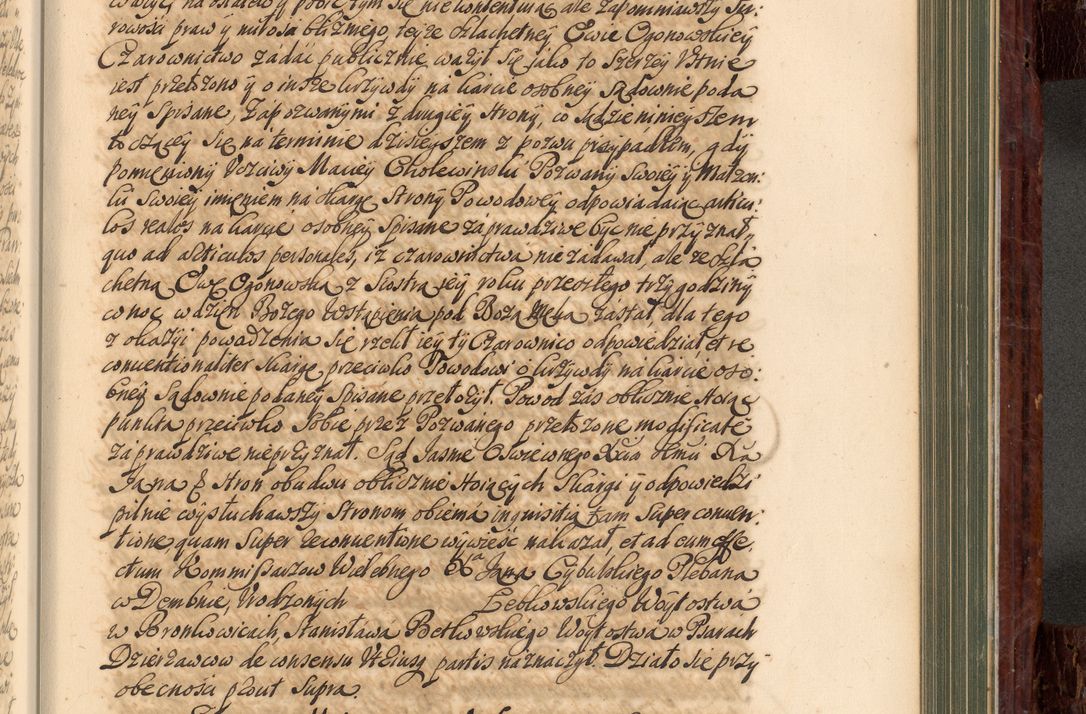 rowości praw y miłosci bliźniego, teyże szlachetney Ewie Ogonowskiey
Czarownictwo zadać publicznie ważył się jako to szerzey Ustnie
iest przełożono y o insze krzywdy na karcie osobney sądownie poda
ney spisane, Zapozwanymi z drugiey strony, co sądzeniu ninieyszem
toczący się na terminie dzisieyszem z pozwu przypadłem, gdy
pomieniony Uczciwy Maciey Cholewinski Pozwany swoiey y Małżon:
ki swoiey imieniem na skargę strony Powodowey odpowiadaiąc articu:
los reales na karcie osobney spisane za prawdziwe być nie przyznał,
quo ad articulos personales, iż czarownictwa nie zadawał, ale że szla
chetną Ewę Ogonowską z Siostrą iey roku przeszłego trzy godziny
w noc w dzień Bożego Wstąpienia pod Bożą Męką zastał, dla tego
z okazyi powadzenia się rzekł iey ty Czarownico odpowiedział, et re
conventionaliter skargę przeciwko Powodowi o krzywdy na karcie oso:
bney Sądownie podaney spisane przełożył. Powod zaś oblicznie stoiąc
punkta przeciwko sobie przez Pozwanego przełożone modificatè
za prawdziwe nie przyznał. Sąd Jaśnie Oświeconego Xcia Jmci Xa
Pana z stron obudwu oblicznie stoiących skargi y odpowiedzi
pilnie wysłuchawszy stronom obiema inquisitią tam super conven:
tione quam super reconventione wywieść nakazał, et ad eum effe,
ctum Kommissarzow Wielebnego Xa Jana Cybulskiego Plebana
w Dembnie, Urodzonych Lebkowskiego Woytostwa
w Bronkowicach, Stanisława Betkowskiego Woytostwa w Psarach
Dzierżawcow de consensu Utriusq partis naznaczył. Działo się przy
obecności prout supra.